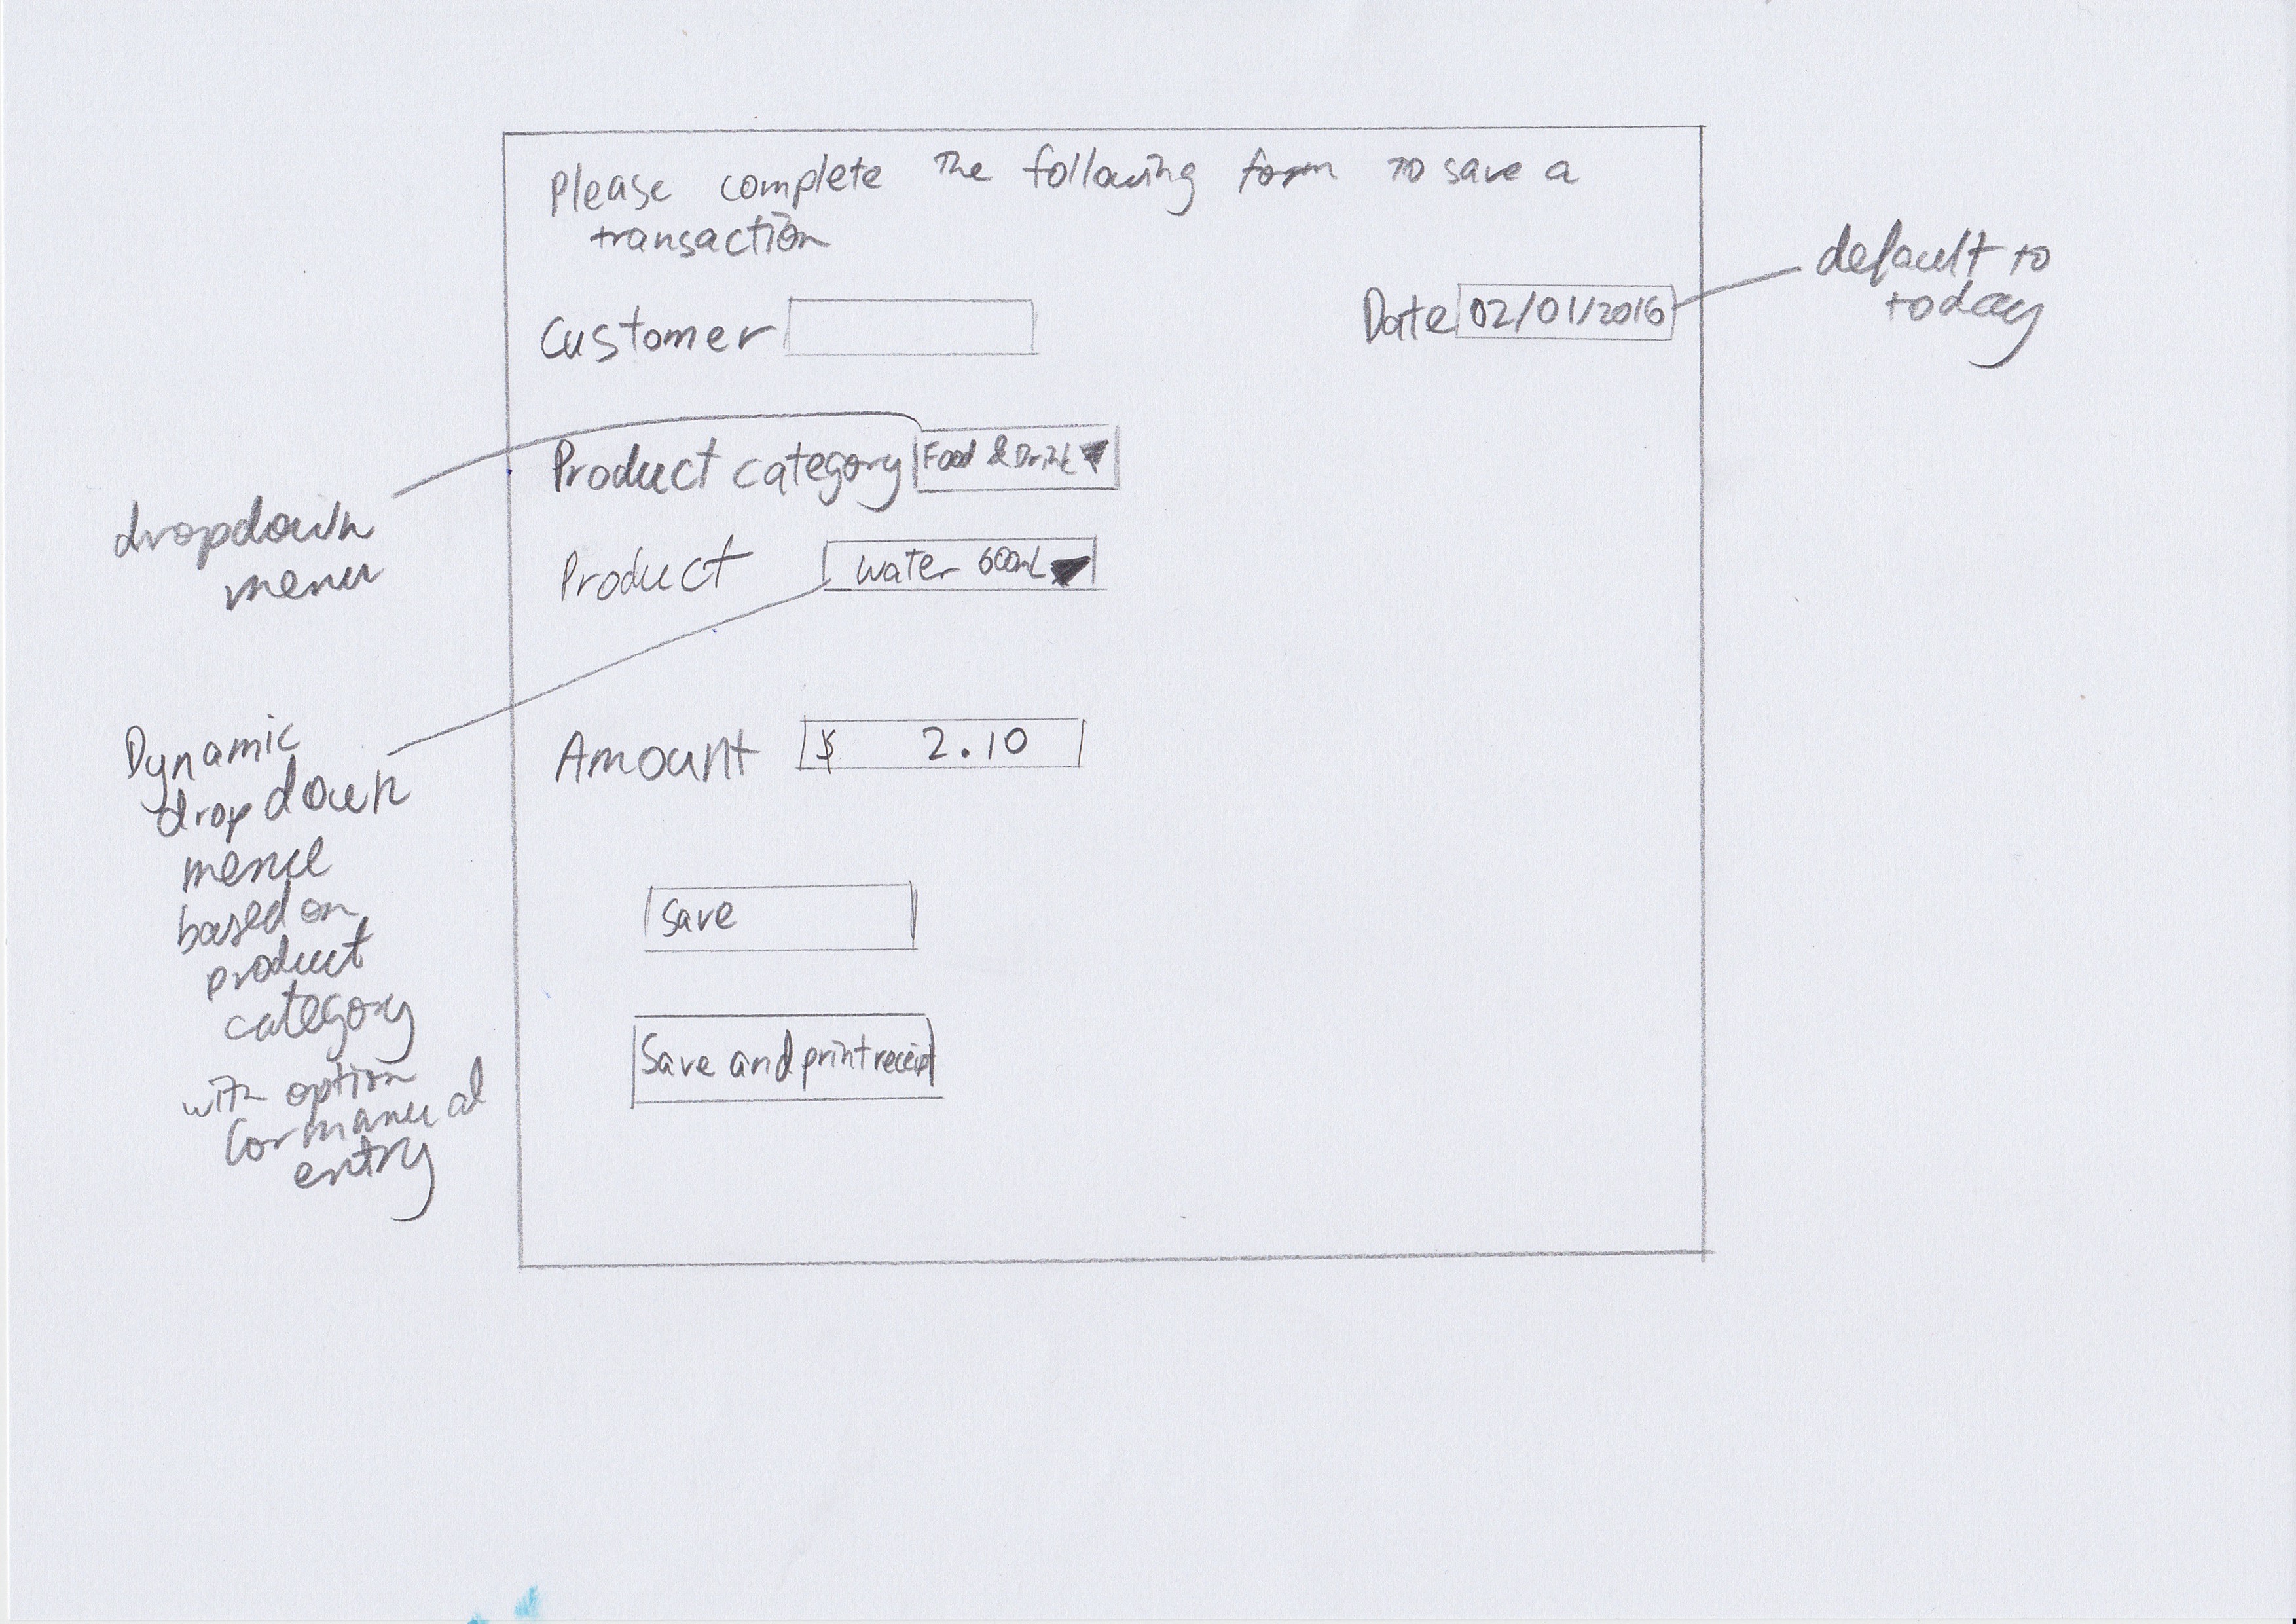 Please complete the following form to save a
transaction
default to
today
Customer
Date 02/01/2016
Product category Food & Drink
dropdown
menu
Product water 600mL
Dynamic
dropdown
menu
based on
product
category
with option
for manual
entry
Amount $ 2.10
Save
Save and print receipt